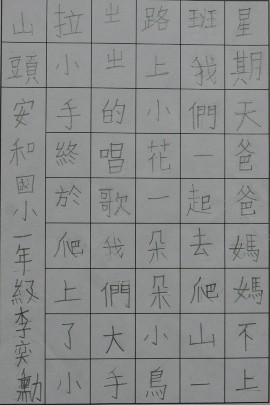 星期天爸爸媽媽不上
班我們一起去爬山一
路上小花一朵朵小鳥
ㄓㄓ的唱歌我們大手
拉小手終於爬上了小
山頭安和國小一年級李奕勳